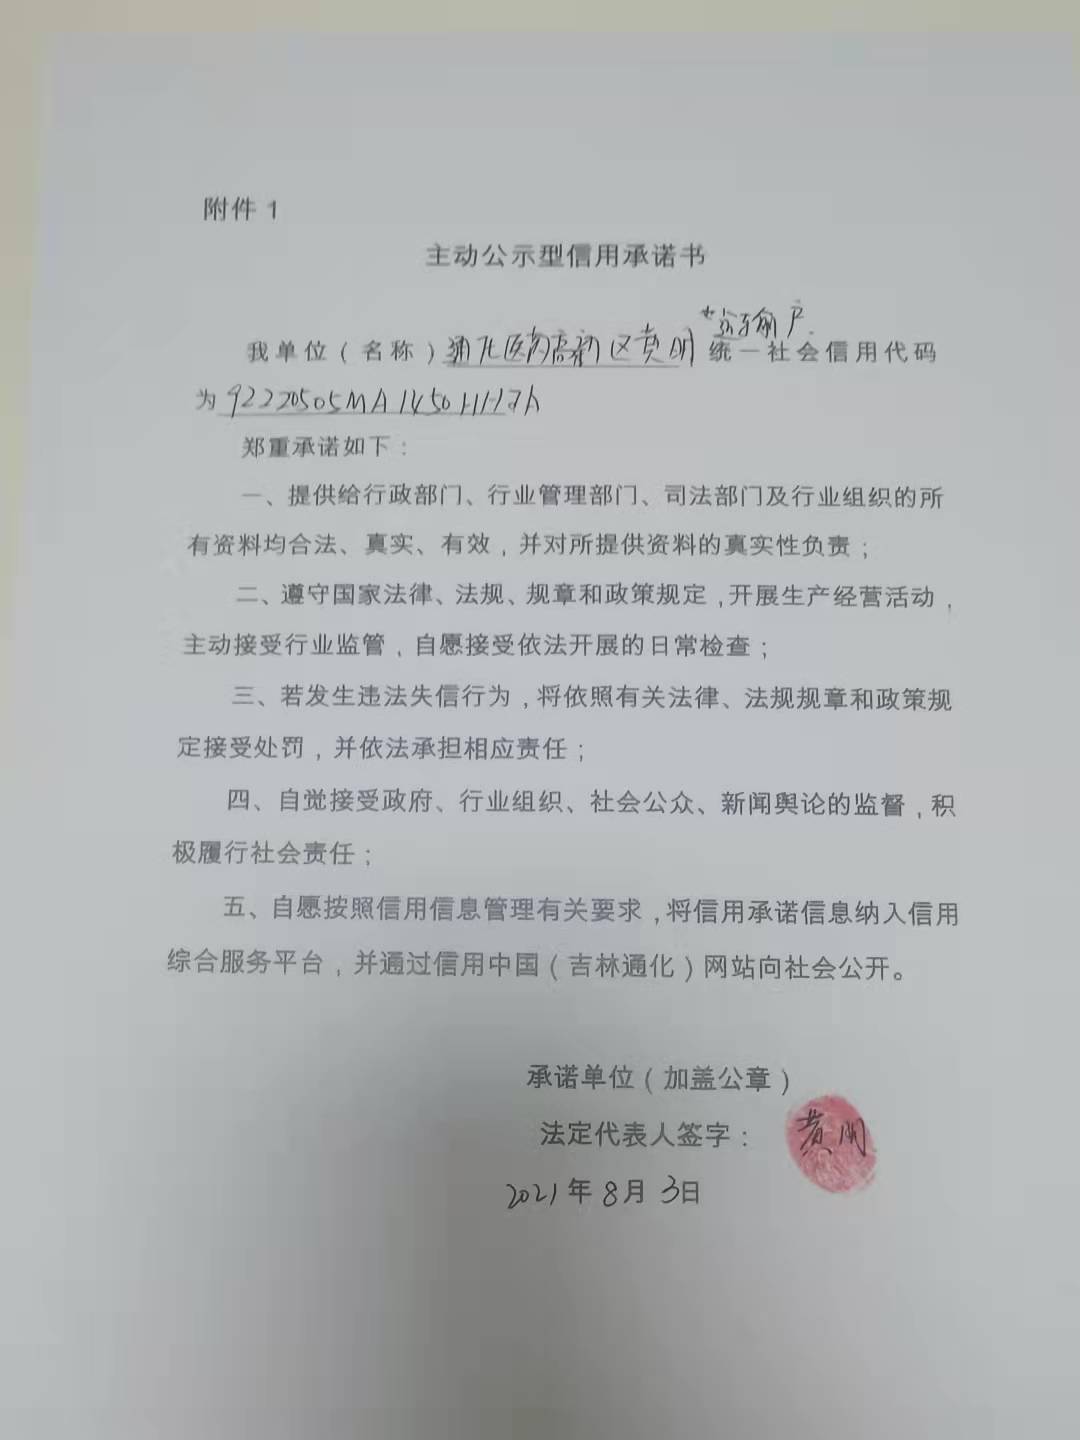 附件 1
主动公示型信用承诺书
我单位（名称）通化医药高新区黄明 户 统一社会信用代码
为 92220505MA1450
郑重承诺如下：
一、提供给行政部门、行业管理部门、司法部门及行业组织的所
有资料均合法、真实、有效，并对所提供资料的真实性负责；
二、遵守国家法律、法规、规章和政策规定，开展生产经营活动，
主动接受行业监管，自愿接受依法开展的日常检查；
三、若发生违法失信行为，将依照有关法律、法规规章和政策规
定接受处罚，并依法承担相应责任；
四、自觉接受政府、行业组织、社会公众、新闻舆论的监督，积
极履行社会责任；
五、自愿按照信用信息管理有关要求，将信用承诺信息纳入信用
综合服务平台，并通过信用中国（吉林通化）网站向社会公开。
承诺单位（加盖公章）
法定代表人签字： 黄明
2021年 8月 3日